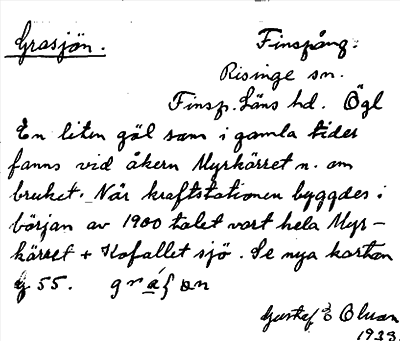 Grasjön.
Finspång:
Risinge sn.
Finsp. Läns hd. Ögl
En liten göl som i gamla tider
fanns vid åkern Myrkärret n. om
bruket. När kraftstationen byggdes i
början av 1900 talet vart hela Myr-
kärret + Kofallet sjö. Se nya kartan
G 55. gra
Gustaf E Olsson
1933.